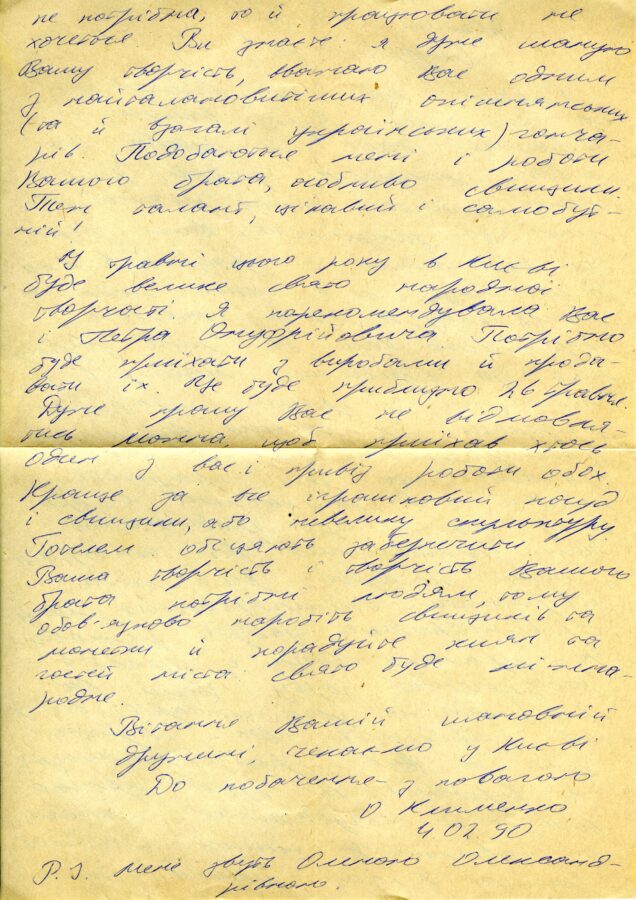 не потрібна, то й працювати не
хочеться. Ви знаєте я дуже шаную
Вашу творчість, вважаю Вас одним
з найталановитіших опішнянських
(та й взагалі українських) гонча-
рів. Подобаються мені і роботи
Вашого брата, особливо свищики.
Теж талант, цікавий і самобут-
ній!
У травні цього року в Києві
буде велике свято народної
творчості. Я порекомендувала Вас
і Петра Онуфрійовича. Потрібно
буде приїхати з виробами й прода-
вати їх. Це буде приблизно 26 травня.
Дуже прошу Вас не відмовля-
тись можна, щоб приїхав хтось
один з вас і привіз роботи обох.
Краще за все іграшковий посуд
і свищики, або невелику скульптуру.
Готелем обіцяють забезпечити.
Ваша творчість і творчість Вашого
брата потрібні людям, тому
обов'язково наробіть свищиків та
й порадуйте киян та
гостей міста. Свято буде міжна-
родне.
Вітання Вашій шановній
дружині, чекаємо у Києві
До побачення з повагою
О Клименко
4.02.90
P.S. Мене звуть Оленою Олександ-
рівною.